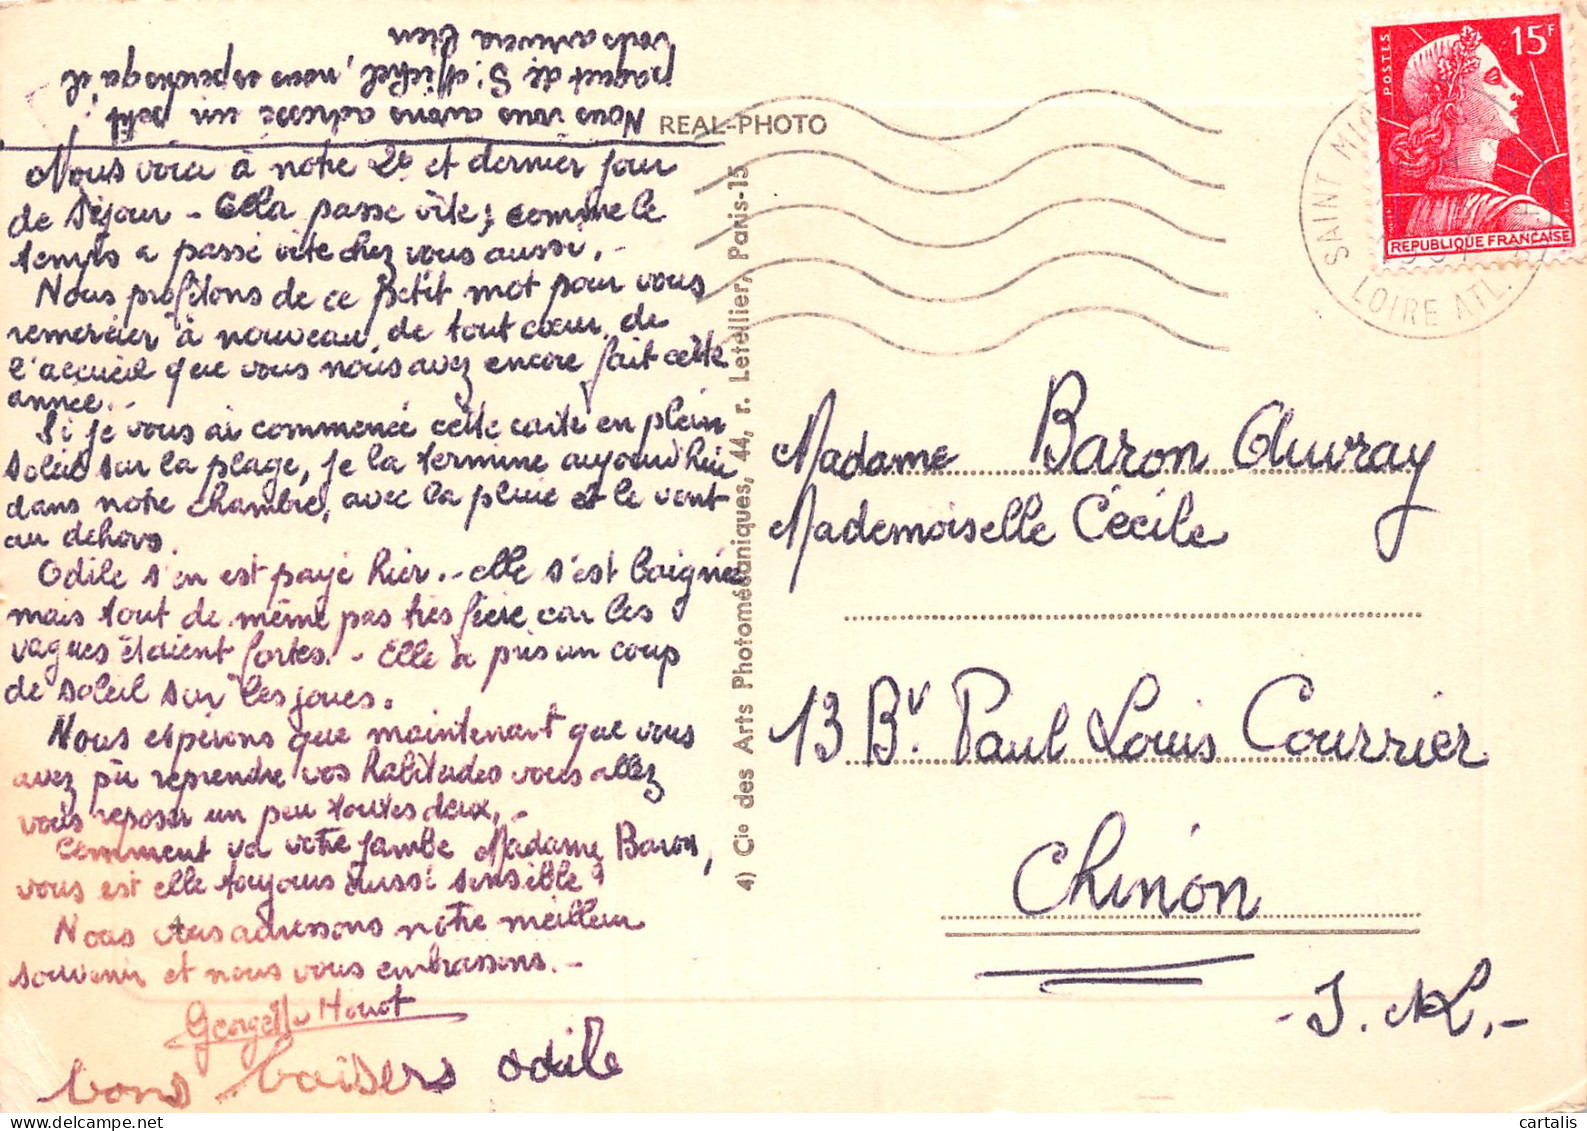 Nous vous avons adressé un petit
paquet de St Michel, nous espérons qu'il
vous arrivera bien
REAL-PHOTO
Nous voici à notre 2e et dernier jour
de séjour - Cela passe vite, comme le
temps a passé vite chez vous aussi. -
Nous profitons de ce petit mot pour vous
remercier à nouveau, de tout cœur, de
l'accueil que vous nous avez encore fait cette
année. -
Si je vous ai commencé cette carte en plein
soleil sur la plage, je la termine aujourd'hui
dans notre chambre, avec la pluie et le vent
au dehors.
Odile s'en est payé hier. - elle s'est baignée
mais tout de même pas très fière car les
vagues étaient fortes. - Elle a pris un coup
de soleil sur les joues.
Nous espérons que maintenant que vous
avez pu reprendre vos habitudes vous allez
vous reposer un peu toutes deux, -
Comment va votre jambe Madame Baron,
vous est elle toujours aussi sensible ?
Nous vous adressons notre meilleur
souvenir et nous vous embrassons. -
Georgette Honot
bons baisers odile
4) Cie des Arts Photomécaniques, 44, r. Letellier, Paris-15
POSTES
15F
REPUBLIQUE FRANÇAISE
SAINT MIC
LOIRE ATL.
Madame Baron Auvray
Mademoiselle Cécile
13 Bv. Paul Louis Courrier
Chinon
- I. & L. -
cartalis